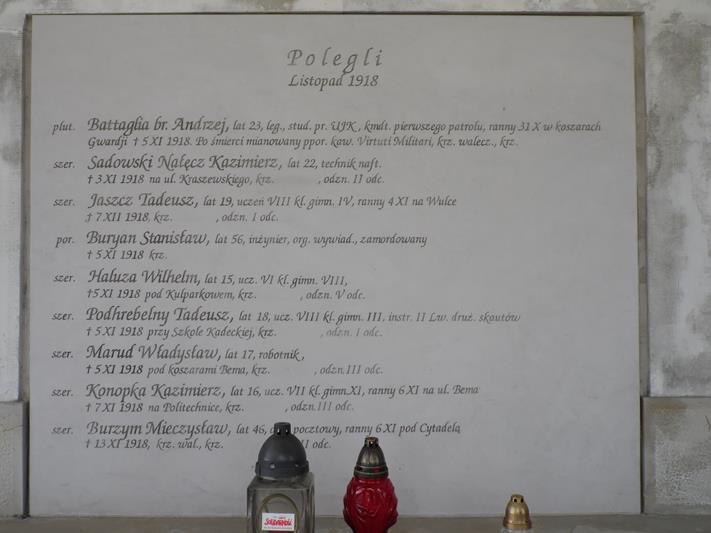 Polegli
Listopad 1918
plut. Battaglia br. Andrzej, lat 23, leg., stud. pr. UJK, kmdt. pierwszego patrolu, ranny 31 X w koszarach
Gwardji † 5 XI 1918. Po śmierci mianowany ppor. kaw. Virtuti Militari, krz. walecz., krz.
szer. Sadowski Nałęcz Kazimierz, lat 22, technik naft.
† 3 XI 1918 na ul. Kraszewskiego, krz. , odzn. II odc.
szer. Jaszcz Tadeusz, lat 19, uczeń VIII kl. gimn. IV, ranny 4 XI na Wulce
† 7 XII 1918, krz. , odzn. I odc.
por. Buryan Stanisław, lat 56, inżynier, org. wywiad., zamordowany
† 5 XI 1918 krz.
szer. Haluza Wilhelm, lat 15, ucz. VI kl. gimn. VIII,
†5 XI 1918 pod Kulparkowem, krz. , odzn. V odc.
szer. Podhrebelny Tadeusz, lat 18, ucz. VIII kl. gimn. III, instr. II Lw. druż. skautów
† 5 XI 1918 przy Szkole Kadeckiej, krz. , odzn. I odc.
szer. Marud Władysław, lat 17, robotnik,
† 5 XI 1918 pod koszarami Bema, krz. , odzn.III odc.
szer. Konopka Kazimierz, lat 16, ucz. VII kl. gimn.XI, ranny 6 XI na ul. Bema
† 7 XI 1918 na Politechnice, krz. , odzn.III odc.
szer. Burzym Mieczysław, lat 46, pocztowy, ranny 6 XI pod Cytadelą
† 13 XI 1918, krz. wal., krz. odc.
SOLIDARNOŚĆ